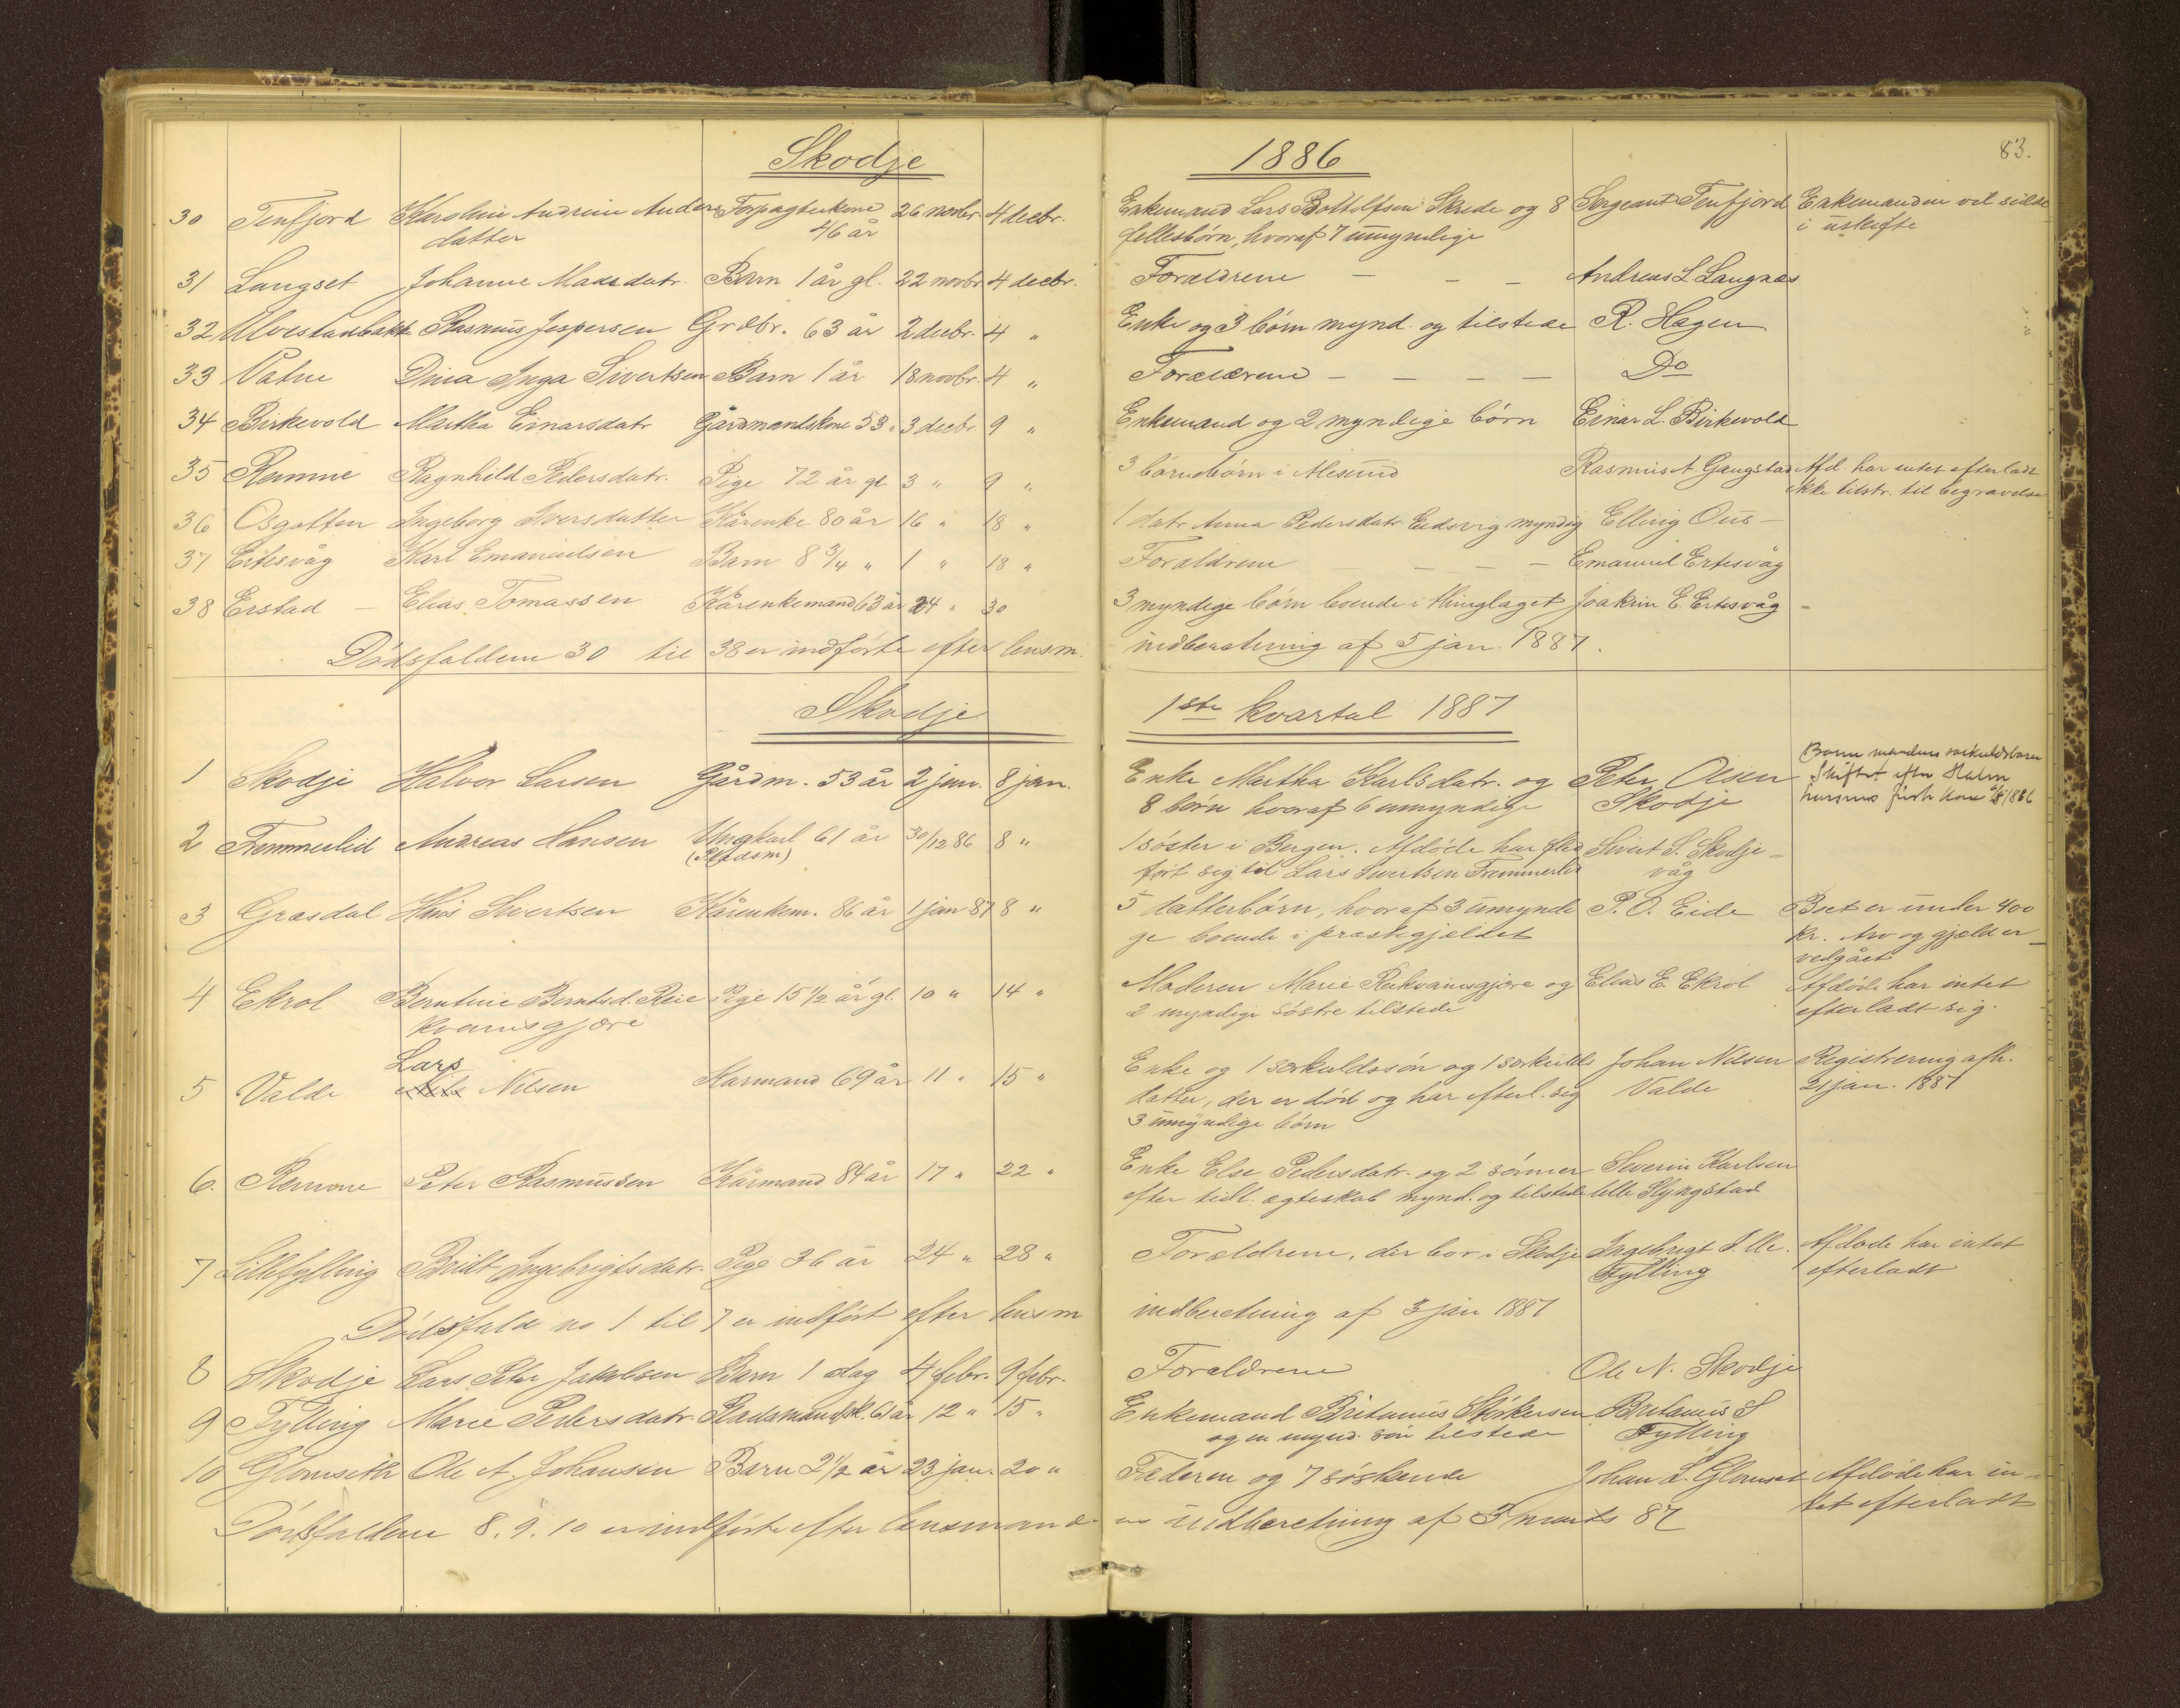 Skodje 1886 83.
30 Tenfjord Karoline Andrine Anders Forpagterkone 26 novbr. 4 decbr. Enkemand Lars Bottolfsen Skrede og 8 Sergeant Tenfjord Enkemanden vil sidde
datter 46 år fellesbørn, hvoraf 7 umyndige i uskifte
31 Langset Johanne Madsdatr. Barn 1 år gl. 22 novbr. 4 decbr. Forældrene — — — Andreas L Langnæs
32 Rasmus Jespersen Grdbr. 63 år 2 decbr. 4 " Enke og 3 børn mynd. og tilstede R. Hagen
33 Vatne Dina Inga Sivertsen Barn 1 år 18 novbr. 4 " Forældrene — — — — Do
34 Birkevold Martha Einarsdatr Gårdmandskone 53 " 3 decbr. 9 " Enkemand og 2 myndige børn Einar L. Birkevold
35 Remme Ragnhild Pedersdatr. Pige 72 år gl. 3 " 9 " 3 børnebørn i Ålesund Rasmus A. Gangstad Afd. har intet efterladt
ikke tilstr. til begravelse
36 Osgotten Ingeborg Iversdatter Kårenke 80 år 16 " 18 " 1 datr Anna Pedersdatr Eidsvig myndig Elling Ous —
37 Ertesvåg Karl Emanuelsen Barn 8 3/4 " 1 " 18 " Foraldrene — — — Emanuel Ertesvåg
38 Erstad — Elias Tomassen Kårenkemand 63 år 24 " 30 3 myndige børn boende i thinglaget Joakim E. Ertesvåg —
Dødsfaldene 30 til 38 er indførte efter lensm. indberetning af 5 jan. 1887.
Skodje 1ste kvartal 1887
1 Skodje Halvor Larsen Gårdm. 53 år 2 jan. 8 jan. Enke Martha Karlsdatr. og Peter Olsen
8 børn hvoraf 6 umyndige Skodje
Skiftet efter
første kone 1886
2 Fremmerlid Andreas Hansen Ungkarl 61 år 30/12 86 8 " 1 søster i Bergen. Afdøde har fled Sivert S. Skodje-
ført sig til Lars Sivertsen Fremmerlid våg
3 Grasdal Hans Sivertsen Kårenkem. 86 år 1 jan 87 8 " 5 datterbørn, hvoraf 3 umyndi P. O. Eide Boet er under 400
ge boende i præstegjældet kr. Arv og gjæld er
vedgået
4 Ekrol Berntine Berntsd. Reie Pige 15 1/2 år gl. 10 " 14 " Moderen Marie Reikvamsgjære og Elias E. Ekrol Afdøde har intet
kvamsgjære 2 myndige søstre tilstede efterladt sig.
Lars
5 Valde Nils Nilsen Karmand 69 år 11 " 15 " Enke og 1 særkuldssøn og 1 særkulds Johan Nilsen Registrering afh.
datter, der er død og har efterl. sig Valde 21 jan. 1887
3 umyndige børn
6. Remme Peter Rasmussen Kårmand 84 år 17 " 22 " Enke Else Pedersdatr. og 2 sønner Severin Karlsen
efter tidl. ægteskab mynd. og tilstede lille Slyngstad
7 Lillefylling Bridt Ingebrigtsdatr. Pige 36 år 24 " 28 " Forældrene, der bor i Skodje Ingebrigt J. lle. Afdøde har intet
Fylling efterladt
Dødsfald no 1 til 7 er indført efter lensm indberetning af 3 jan 1887
8 Skodje Lars Peter Jakobsen Barn 1 dag 4 febr. 9 febr. Foraldrene Ole N. Skodje
9 Fylling Marie Pedersdatr. Pladsmandsk. 61 år 12 " 15 " Enkemand Britanus Størkersen Britanus S
og en mynd. søn tilstede Fylling
10 Glomseth Ole A. Johansen Barn 2 1/2 år 23 jan. 20 " Faderen og 7 søskende Johan L. Glomset Afdøde har in-
tet efterladt
Dødsfaldene 8. 9. 10 er indførte efter lensmandens indberetning af 3 marts 87